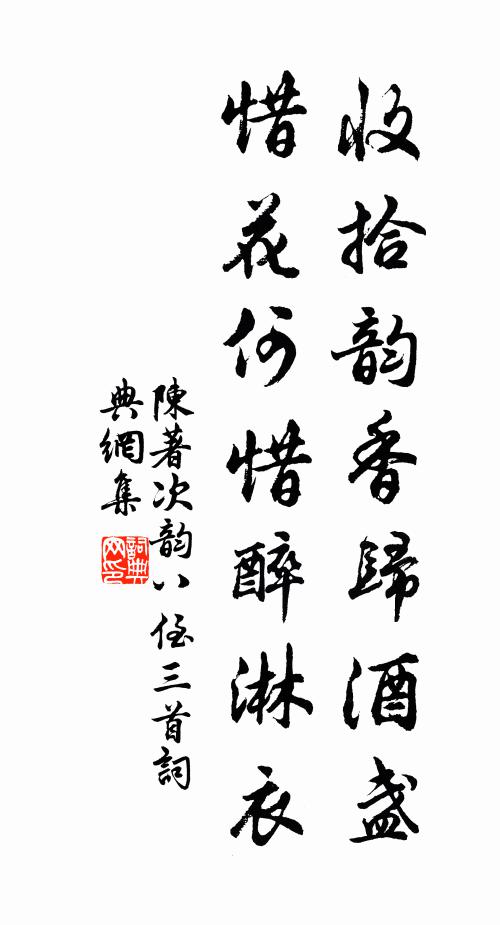 收拾韵香歸酒盞
惜花何惜醉淋衣
陳著次韵八侄三首詞
典網集
詞典
网印